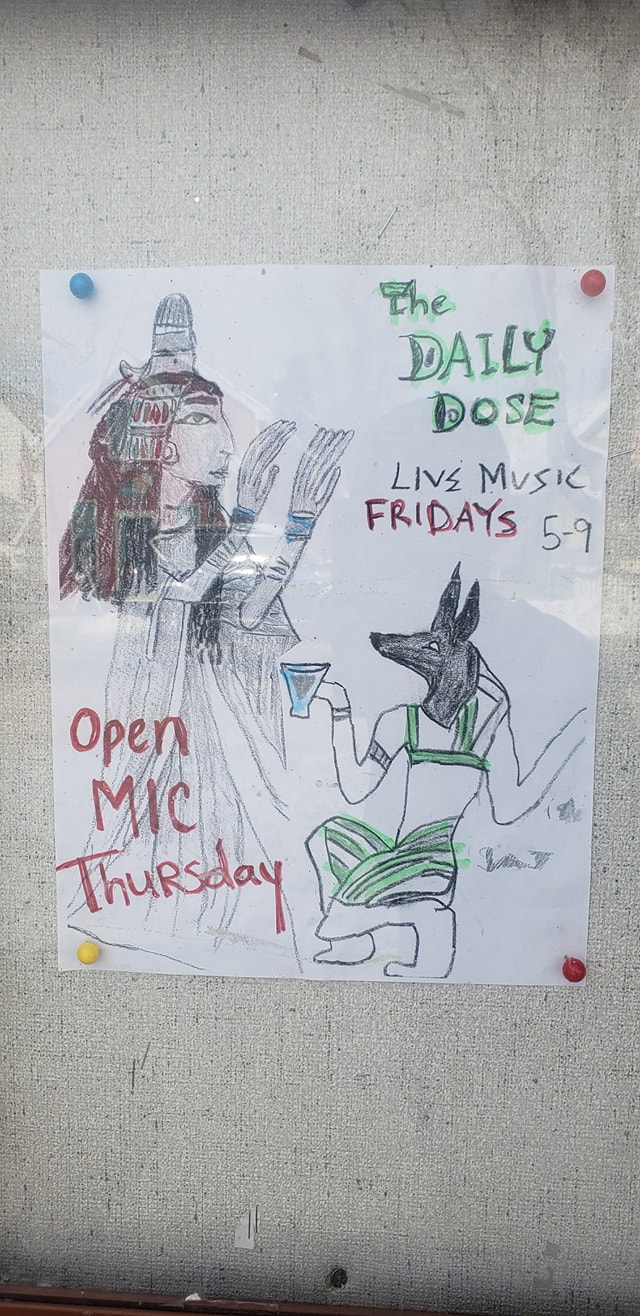 The
DAILY
DOSE
LIVE MUSIC
FRIDAYS 5-9
Open
MIC
Thursday